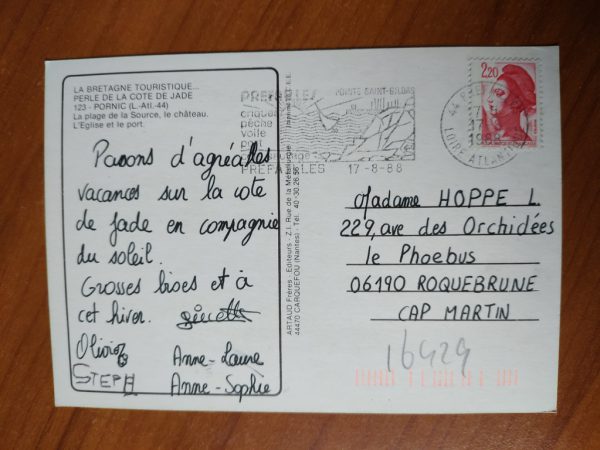 LA BRETAGNE TOURISTIQUE...
PERLE DE LA COTE DE JADE
123 - PORNIC (L.-Atl.-44)
La plage de la Source, le château.
L'Eglise et le port.
Passons d'agréables
vacances sur la côte
de Jade en compagnie
du soleil.
Grosses bises et à
cet hiver.
Olivier
Anne-Laure
STEPH
Anne-Sophie
ARTAUD Frères - Editeurs - Z.I. Rue de la Métallurgie
44470 CARQUEFOU (Nantes) - Tél. 40-30.26.56
PREFAILLES
POINTE SAINT-GILDAS
château
pêche
voile
PREFAILLES
17-8-88
2,20
44
LOIRE ATLANTIQUE
Madame HOPPE L.
229, ave des Orchidées
le Phoebus
06190 ROQUEBRUNE
CAP MARTIN
16429